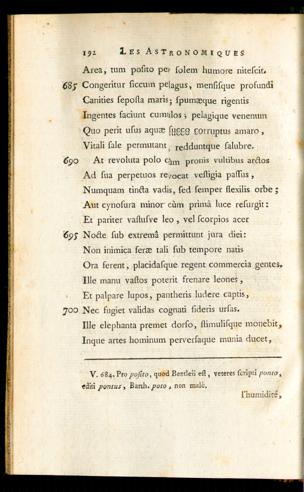 192 LES ASTRONOMIQUES
Area, tum posito per solem humore nitescit.
685 Congeritur siccum pelagus, mensisque profundi
Canities seposta maris; spumæque rigentis
Ingentes faciunt cumulos; pelagique venenum
Quo perit usus aquæ corruptus amaro,
Vitali sale permutant, redduntque salubre.
690 At revoluta polo cùm pronis vultibus arctos
Ad sua perpetuos revocat vestigia passus,
Numquam tincta vadis, sed semper flexilis orbe;
Aut cynosura minor cùm primâ luce resurgit:
Et pariter vastusve leo, vel scorpios acer
695 Nocte sub extremâ permittunt jura diei:
Non inimica feræ tali sub tempore natis
Ora ferent, placidasque regent commercia gentes.
Ille manu vastos poterit frenare leones,
Et palpare lupos, pantheris ludere captis,
700 Nec fugiet validas cognati sideris ursas.
Ille elephanta premet dorso, stimulisque monebit,
Inque artes hominum perversaque munia ducet,
V. 684. Pro posito, quod Bentleii est, veteres scripti ponto,
editi pontus, Barth. poto, non malè.
l'humidité,